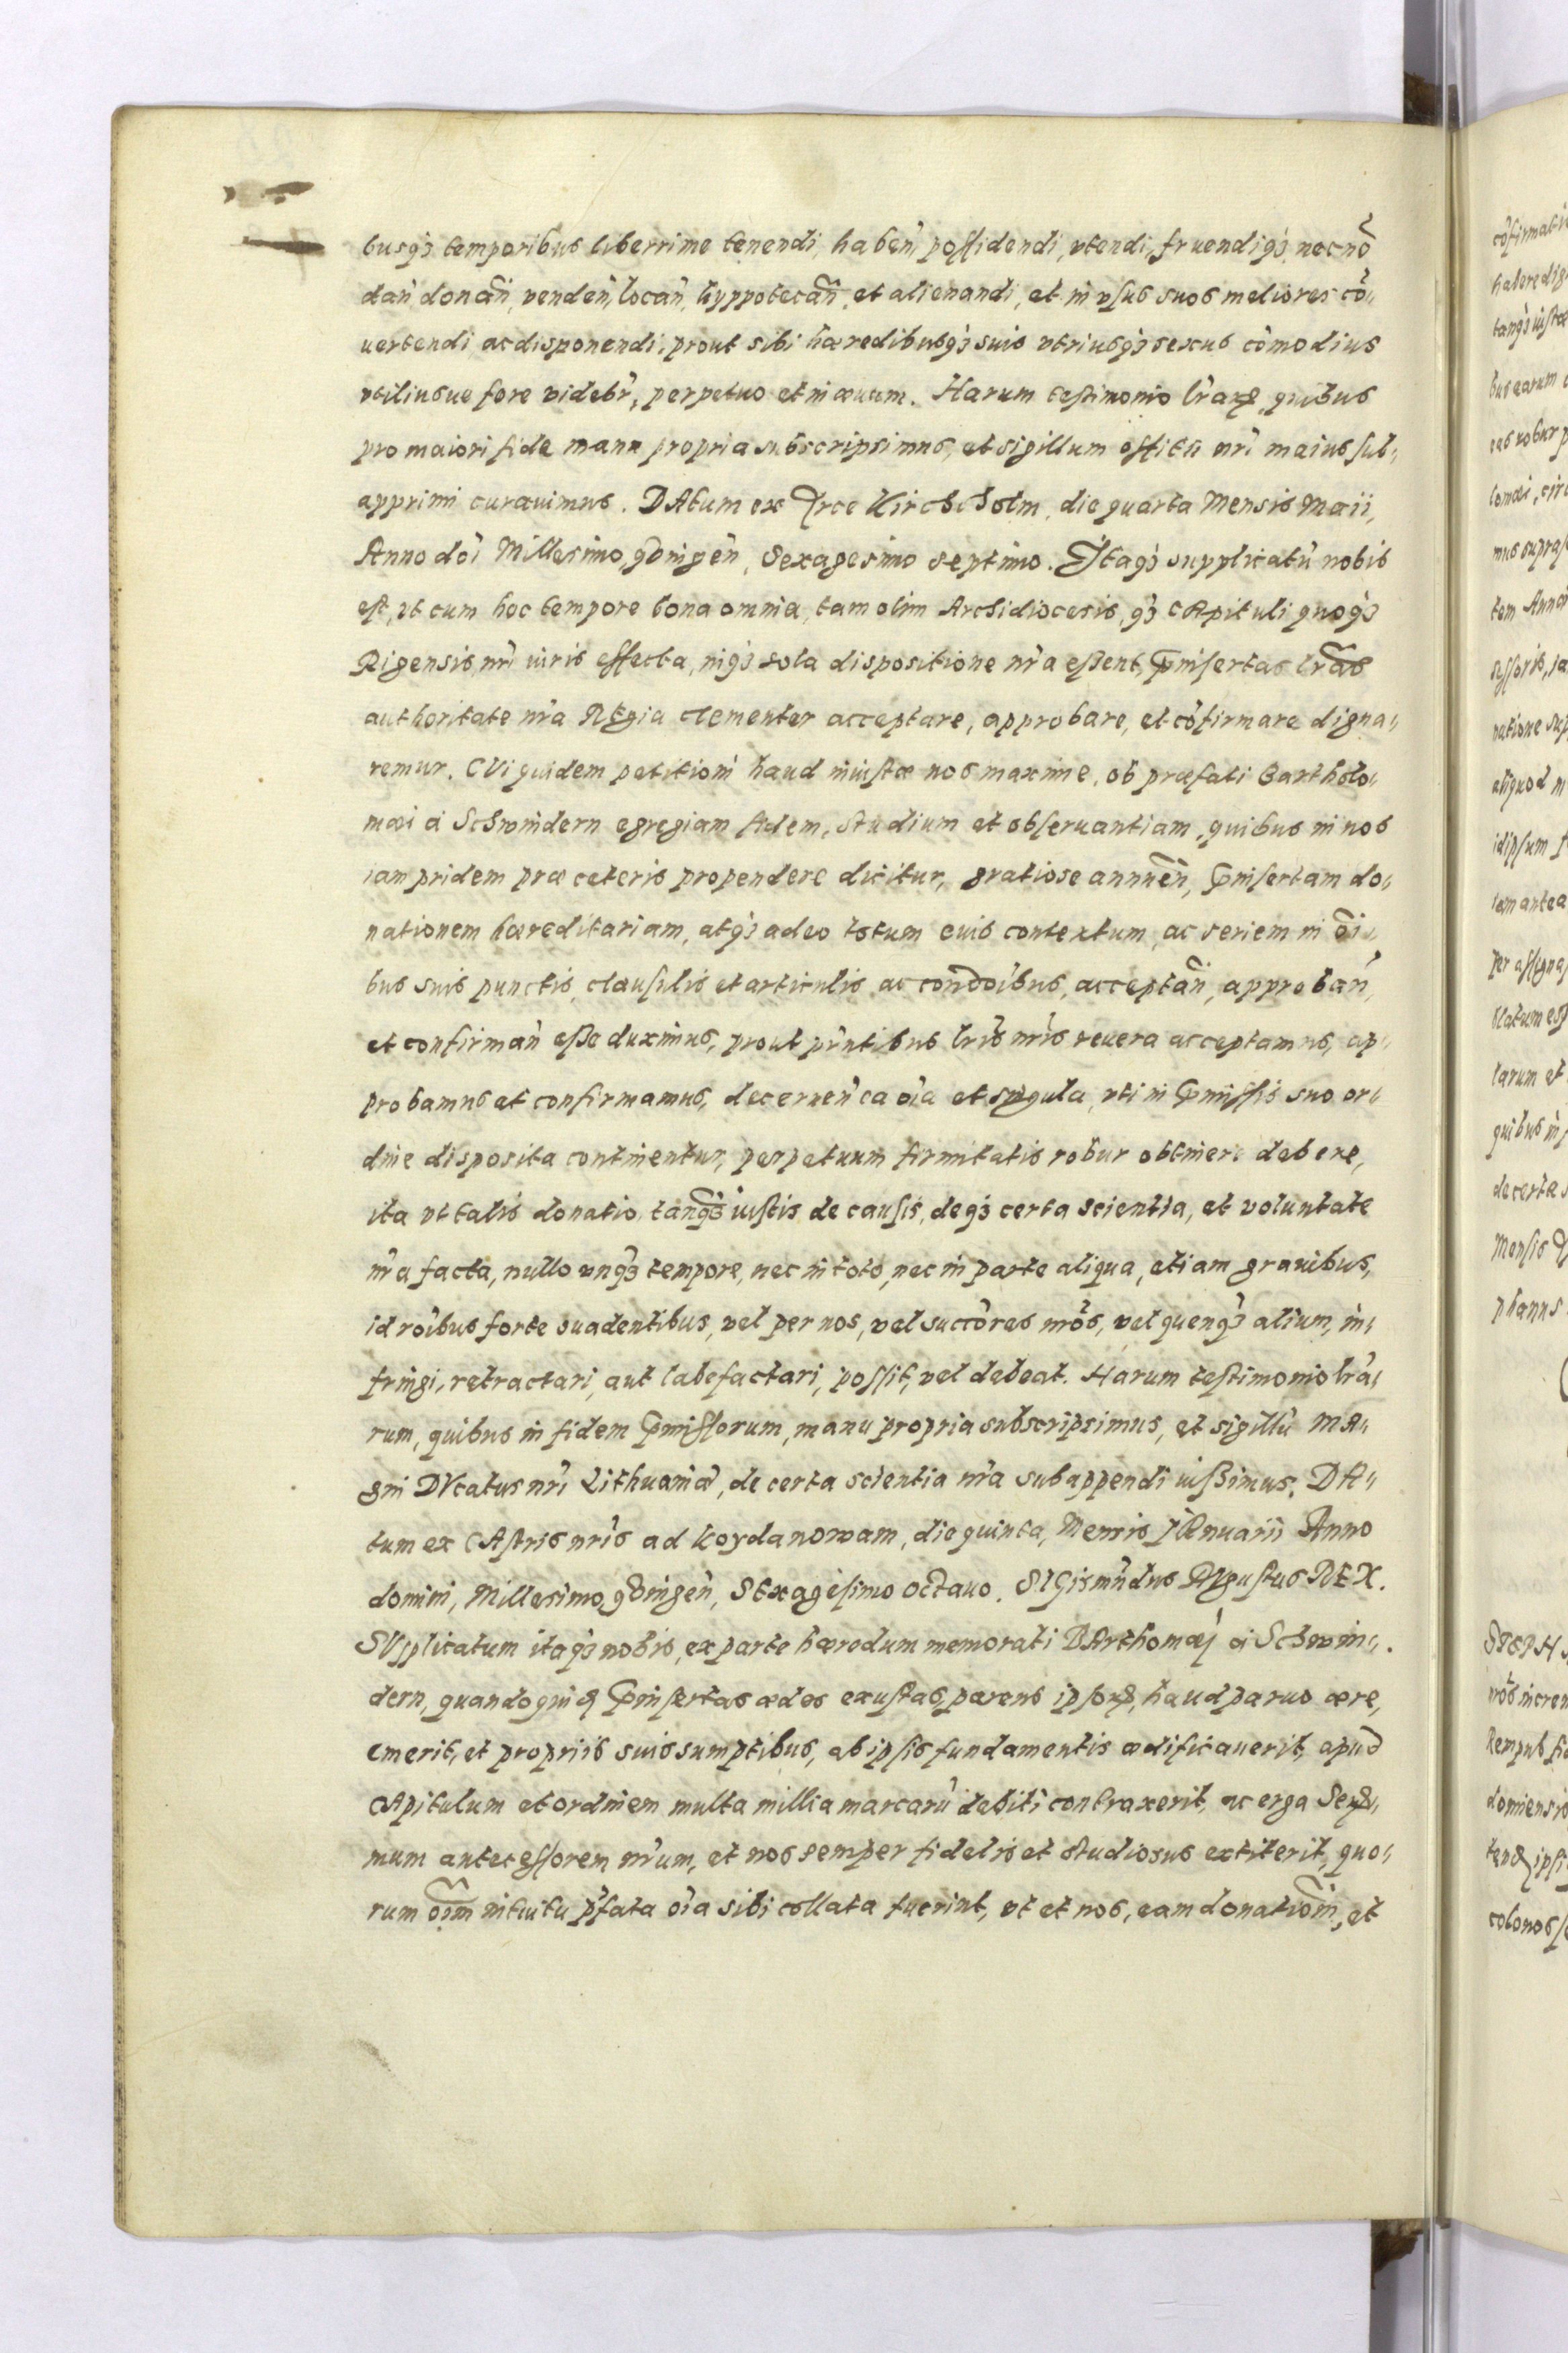 busqꝫ temporibus liberrime tenendi, habeñ, possidendi, vtendi, fruendiqꝫ, necnõ
dañ donañ, vendeñ, locañ, hyppotecañ, et alienandi, et in vsus suos meliores cõ„
uertendi ac disponendi, prout sibi hæredibusqꝫ suis vtriusqꝫ sexus cõmodius
vtiliusue fore videbr̃, perpetuo et in æuum. Harum testimonio lr̃aꝝ, quibus
pro maiori fide manu propria subscripsimus, et sigillum officii nr̃i maius sub„
apprimi curauimus. DAtum ex Arce Kirchholm, die quarta Mensis Maii,
Anno dõi Millesimo, qũingeñ, Sexagesimo septimo. Itaqꝫ supplicatũ nobis
est, vt cum hoc tempore bona omnia, tam olim Archidiocesis, qꝫ CApituli quoqꝫ
Rigensis, nr̃i iuris effecta, inqꝫ sola dispositione nr̃a essent, p̃insertas lr̃as
authoritate nr̃a REgia clementer acceptare, approbare, et cõfirmare digna„
remur. CVi quidem petitioni haud iniustæ nos maxime, ob præfati Bartholo„
mæi à Schwindern egregiam fidem, studium et obseruantiam, quibus in nos
iam pridem præ ceteris propendere dicitur, gratiose annueñ, p̃insertam do„
nationem hæreditariam, atqꝫ adeo totum euis contextum, ac seriem in õi„
bus suis punctis, clausulis et articulis ac conditõibus, acceptañ, approbañ,
et confirmañ esse duximus, prout pñtibus lr̃is nr̃is reuera acceptamus, ap„
probamus et confirmamus, decerneñ ea õia et singula, vti in p̃missis suo or„
dine disposita continentur, perpetuum firmitatis robur obtinere debere,
ita vt talis donatio, tanqꝫ iustis de causis, deqꝫ certa scientia, et voluntate
nr̃a facta, nullo vnqꝫ tempore, nec in toto, nec in parte aliqua, etiam grauibus,
id rõibus forte suadentibus, vel per nos, vel succõres nrõs, vel quenqꝫ alium, in„
fringi, retractari, aut labefactari, possit, vel debeat. Harum testimonio lr̃a„
rum, quibus in fidem p̃missorum, manu propria subscripsimus, et sigillũ MA„
gni DVcatus nr̃i Lithuaniæ, de certa scientia nr̃a subappendi iussimus. DA„
tum ex CAstris nr̃is ad Koydanowam, die quinta, Mensis JAnuarii Anno
domini, Millesimo, qũingeñ, SExagesimo octauo. SIGismũdus AVgustus REX.
SVpplicatum itaqꝫ nobis, ex parte hæredum memorati BArthomæj à Schwin„
dern, quandoquidẽ p̃insertas ædes exustas, parens ipsoꝝ, haud paruo ære,
emerit, et propriis suis sumptibus, ab ipsis fundamentis ædificauerit, apud
CApitulum et ordinem multa millia marcarũ debiti contraxerit, ac erga Serᵉⁿⁱˢ„
mum antecessorem nr̃um, et nos semper fidelis et studiosus extiterit, quo„
rum õim intuitu p̃fata õia sibi collata fuerint, vt et nos, eam donatioñi, et